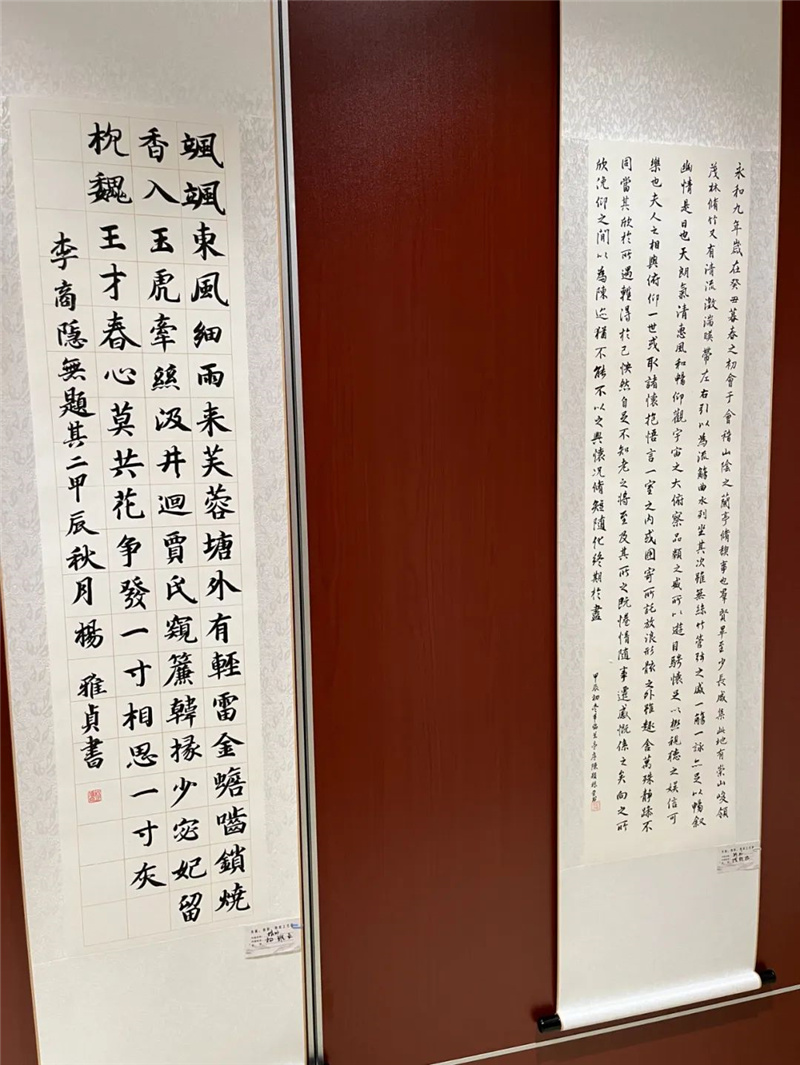 颯颯東風細雨来芙蓉塘外有輕雷金蟾嚙鎖燒
香入玉虎牽絲汲井迴賈氏窺簾韓掾少宓妃留
枕魏王才春心莫共花争發一寸相思一寸灰
李商隱無題其二甲辰秋月楊雅貞書
永和九年歲在癸丑暮春之初會于會稽山陰之蘭亭脩禊事也羣賢畢至少長咸集此地有崇山峻領
茂林脩竹又有清流激湍暎帶左右引以為流觴曲水列坐其次雖無絲竹管弦之盛一觴一詠亦足以暢叙
幽情是日也天朗氣清惠風和暢仰觀宇宙之大俯察品類之盛所以遊目騁懷足以極視聽之娛信可
樂也夫人之相與俯仰一世或取諸懷抱悟言一室之内或因寄所託放浪形骸之外雖趣舍萬殊靜躁不
同當其欣於所遇輙得於己怏然自足不知老之將至及其所之既惓情隨事遷感慨係之矣向之所
欣俛仰之閒以為陳迹猶不能不以之興懷況脩短隨化終期於盡
甲辰初冬